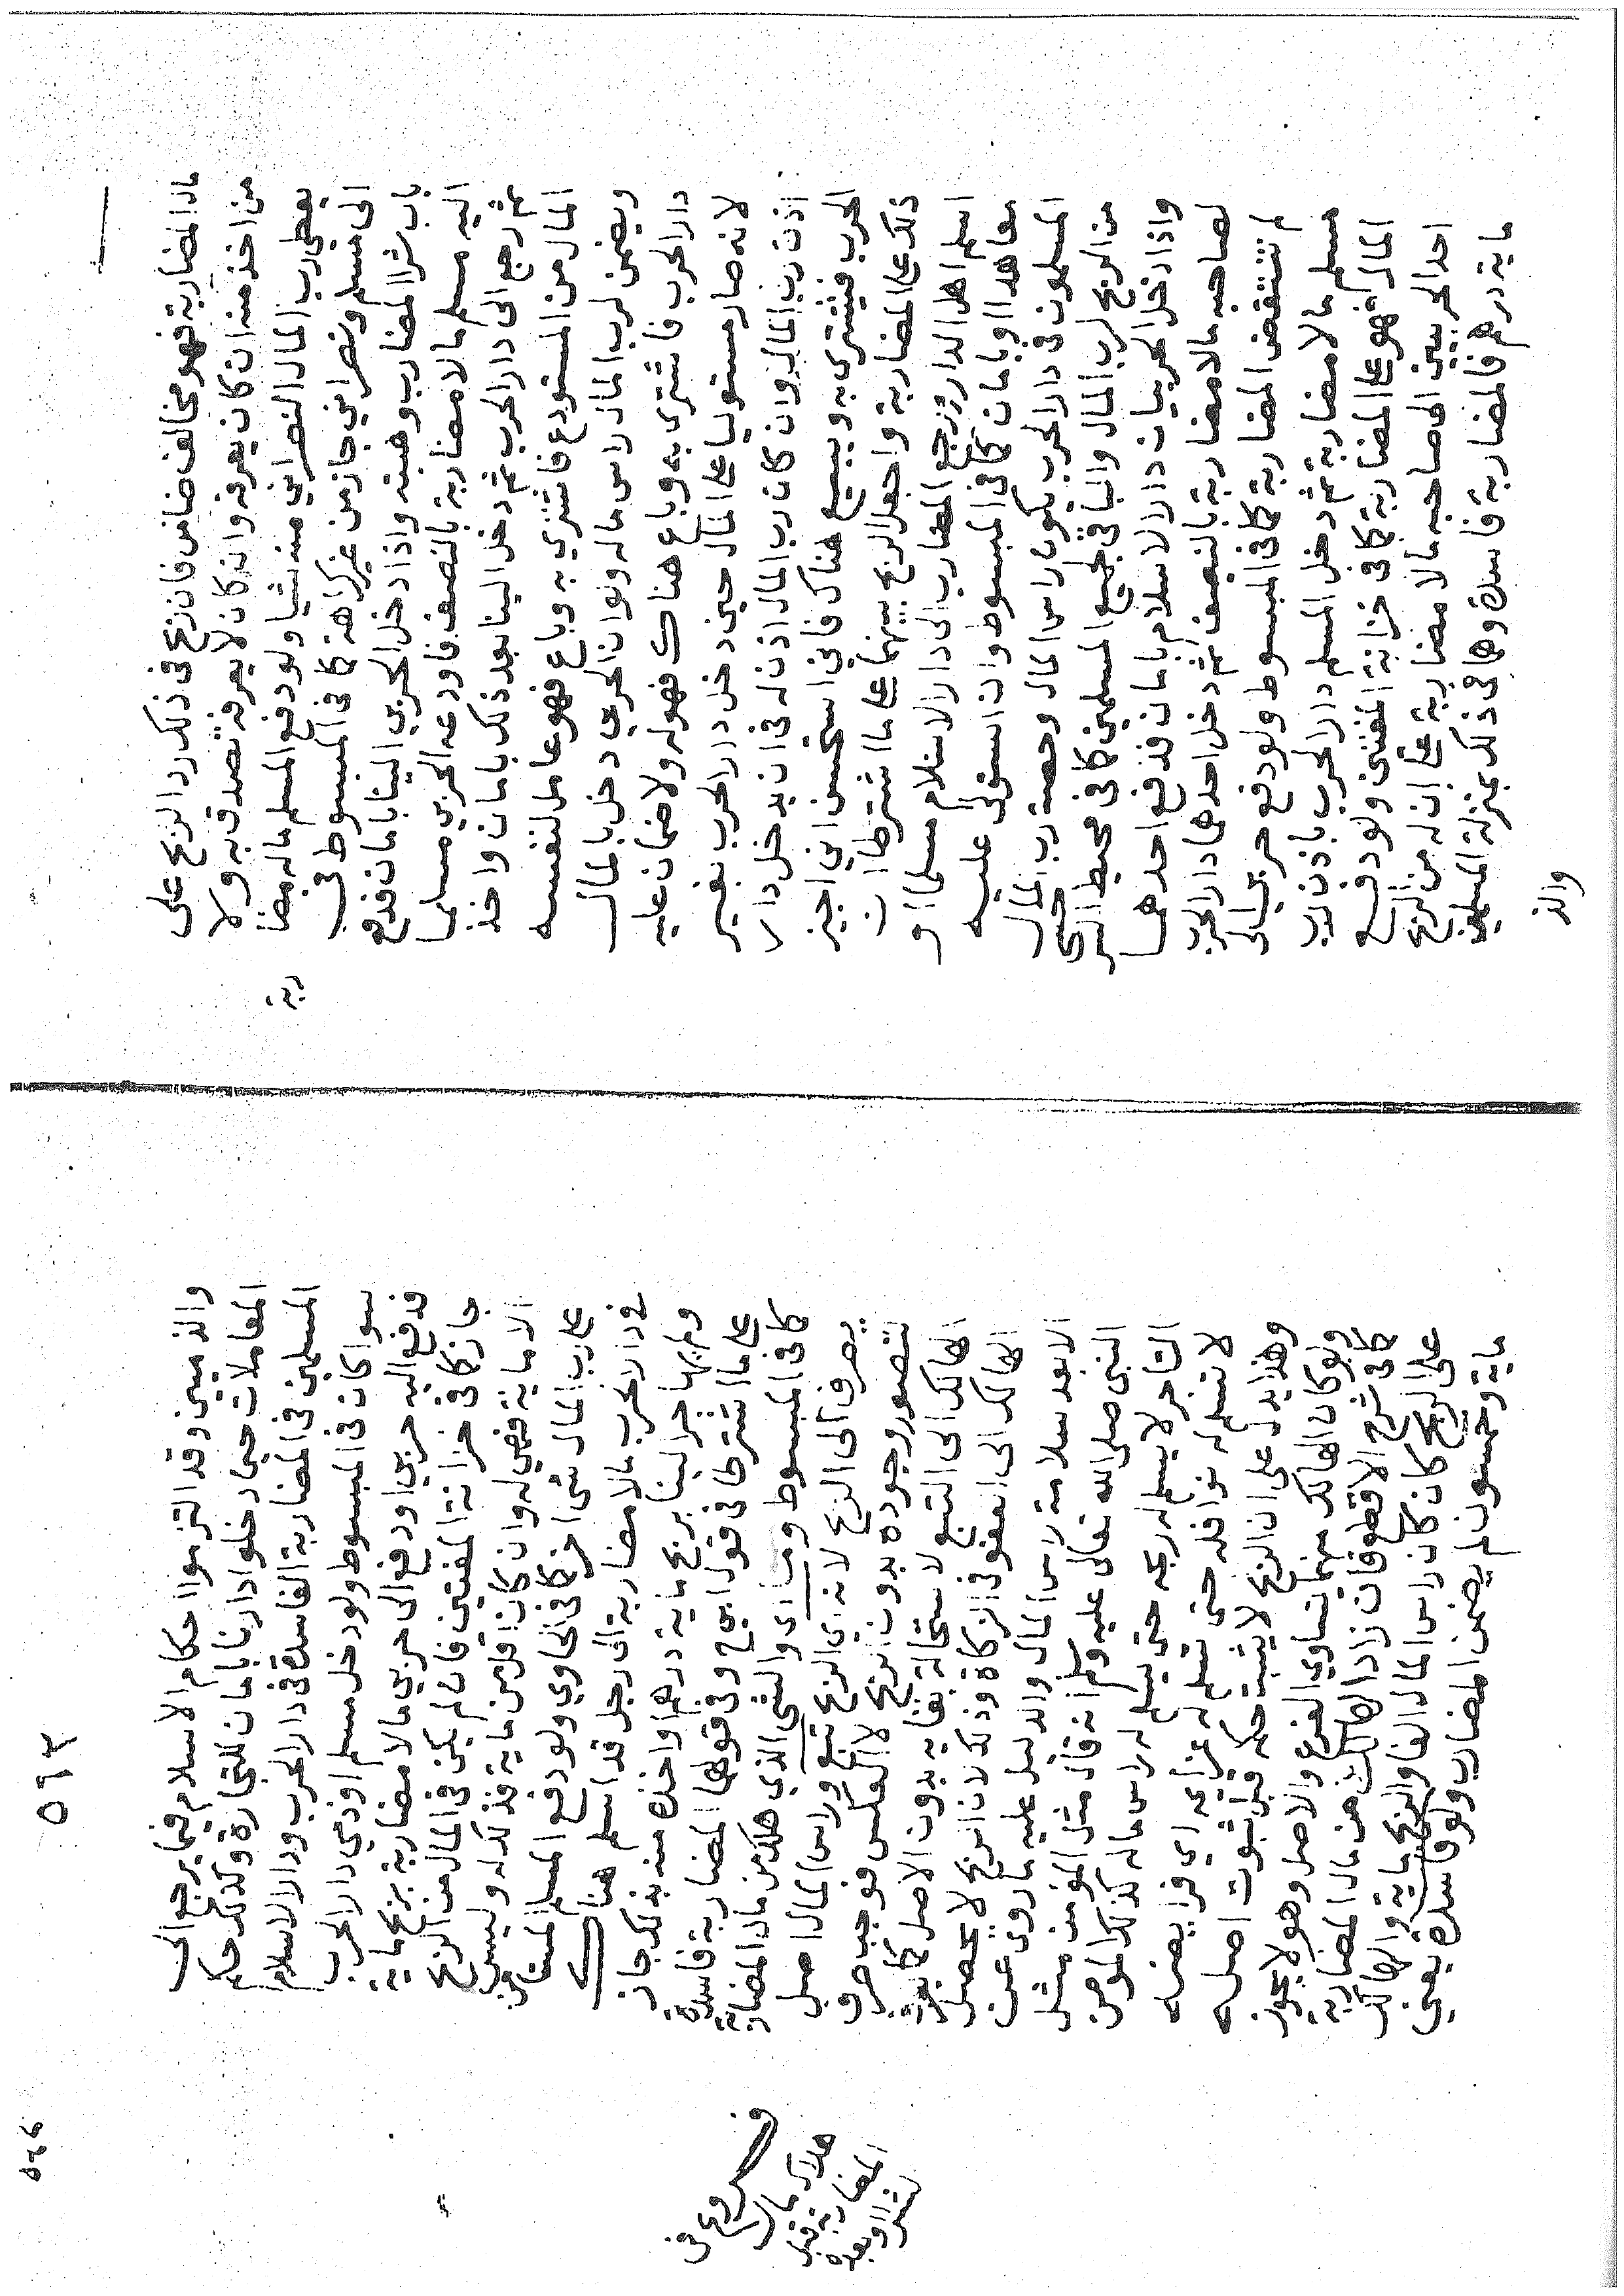 مال المضاربة فهو مخالف ضامن فان ربح في ذلك رد الربح على
من اخذ منه ان كان يعرفه وان كان لا يعرفه تصدق به ولا
يعطي رب المال النصراني منه شيا ولو دفع المسلم ماله مضا
ربة
الى مسلم ونصراني جاز من غير كراهة كما في المبسوط في
باب شرا المضارب وهبته واذا دخل الحربي الينا بامان فدفع
اليه مسلم مالا مضاربة بالنصف فاودعه الحربي مسلما
ثم رجع الى دار الحرب ثم دخل الينا بعد ذلك بامان واخذ
المال من المستودع فاشترى به وباع فهو عامل لنفسه
ويضمن لرب المال راس ماله ولو ان الحربي دخل بالمال
دار الحرب فاشترى به وباع هناك فهو له ولا ضمان عليه
لانه صار مستوليا على المال حين دخل دار الحرب بغير
اذن رب المال وان كان رب المال اذن له في ان يدخل دار
الحرب فيشتري به ويبيع هناك فاني استحسن ان اجيز
ذلك على المضاربة واجعل الربح بينهما على ما اشترطا ان
اسلم اهل الدار ورجع المضارب الى دار الاسلام مسلما او
معاهدا او بامان كما في المبسوط وان استولى عليه
المسلمون في دار الحرب يكون راس المال وحصة رب المال
من الربح لرب المال والباقي لجميع المسلمين كما في محيط السرخسي
واذا دخل الحربيان دار الاسلام بامان فدفع احدهما
لصاحبه مالا مضاربة بالنصف ثم دخل احدهما دار الحرب
لم تنتقض المضاربة كما في المبسوط ولو دفع حربي الى
مسلم مالا مضاربة ثم دخل المسلم دار الحرب باذن رب
المال فهو على المضاربة كما في خزانة المفتين ولو دفع
احد الحربيين الى صاحبه مالا مضاربة على ان له من الربح
ماية درهم فالمضاربة فاسدة وهما في ذلك بمنزلة المسلمين
والذ
٥٦٣
والذميين وقد التزموا احكام الاسلام فيما يرجع الى
المعاملات حين دخلوا دارنا بامان للتجارة وكذلك حكم
المسلمين في المضاربة الفاسدة في دار الحرب ودار الاسلام
سوا كما في المبسوط ولو دخل مسلم او ذمي دار الحرب
فدفع اليه حربي او دفع الى حربي مالا مضاربة بربح ماية
جاز كما في خزانة المفتين فان لم يكن في المال من الربح
الا ماية فهي له وان كان اقل من ماية فذلك له وليس
على رب المال شي اخر كما في الحاوي ولو دفع المسلم المستامن
في دار الحرب مالا مضاربة الى رجل قد اسلم هناك
ولم يهاجر الينا بربح ماية درهم او اخذه منه بذلك جاز
على ما اشترطا في قول ابي ح وفي قولهما المضاربة فاسدة
كما في المبسوط وما اي والشي الذي هلك من مال المضاربة
يصرف الى الربح لانه اي الربح تبع وراس المال اصل
لتصور وجوده بدون الربح لا العكس فوجب صرف
الهالك الى التبع لاستحالة بقايه بدون الاصل كما يصرف
الهالك الى العفو في الزكاة وذلك لان الربح لا يحصل
الا بعد سلامة راس المال والدليل عليه ما روي عن
النبي صلى الله تعالى عليه وسلم انه قال مثل المؤمن مثل
التاجر لا يسلم له ربحه حتى يسلم له راس ماله كذلك المومن
لا تسلم له نوافله حتى تسلم له عزائمه اي فرايضه
وهذا يدل على ان الربح لا يثبت حكمه قبل ثبوت اصله
ولو كان الهالك منهما لتساوى الفرع والاصل وهو لا يجوز
كما في شرح الاقطع فان زاد الهالك من مال المضاربة
على الربح كان كان راس المال الفا والربح ماية والهالك
ماية وخمسون لم يضمن المضارب ولو فاسدة يعني
فروع في
هلاك مال
المضاربة قبل
الشرا وبعده
٥٦٤